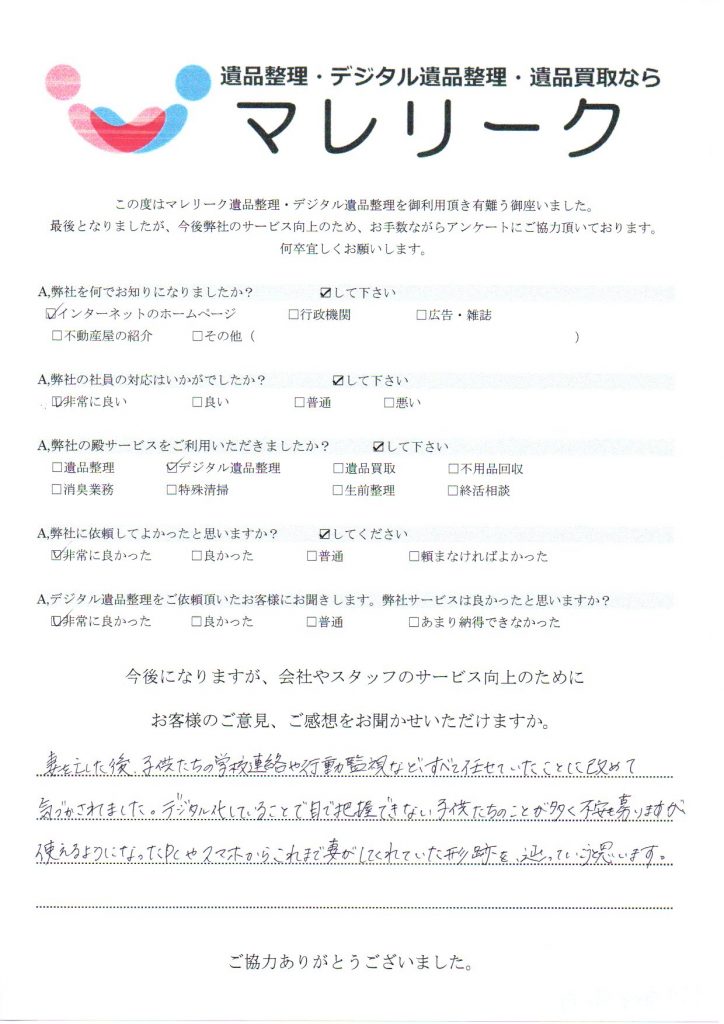 遺品整理・デジタル遺品整理・遺品買取なら
マレリーク
この度はマレリーク遺品整理・デジタル遺品整理を御利用頂き有難う御座いました。
最後となりましたが、今後弊社のサービス向上のため、お手数ながらアンケートにご協力頂いております。
何卒宜しくお願いします。
A,弊社を何でお知りになりましたか？ ☑して下さい
☑インターネットのホームページ □行政機関 □広告・雑誌
□不動産屋の紹介 □その他（ ）
A,弊社の社員の対応はいかがでしたか？ ☑して下さい
☑非常に良い □良い □普通 □悪い
A,弊社の殿サービスをご利用いただきましたか？ ☑して下さい
□遺品整理 ☑デジタル遺品整理 □遺品買取 □不用品回収
□消臭業務 □特殊清掃 □生前整理 □終活相談
A,弊社に依頼してよかったと思いますか？ ☑してください
☑非常に良かった □良かった □普通 □頼まなければよかった
A,デジタル遺品整理をご依頼頂いたお客様にお聞きします。弊社サービスは良かったと思いますか？
☑非常に良かった □良かった □普通 □あまり納得できなかった
今後になりますが、会社やスタッフのサービス向上のために
お客様のご意見、ご感想をお聞かせいただけますか。
妻を亡した後、子供たちの学校連絡や行動監視など、すべて任せていたことに改めて
気づかされました。デジタル化していることで目で把握できない子供たちのことが多く不安も募りますが
使えるようになったPCやスマホからこれまで妻がしてくれていた形跡を、辿っていこうと思います。
ご協力ありがとうございました。